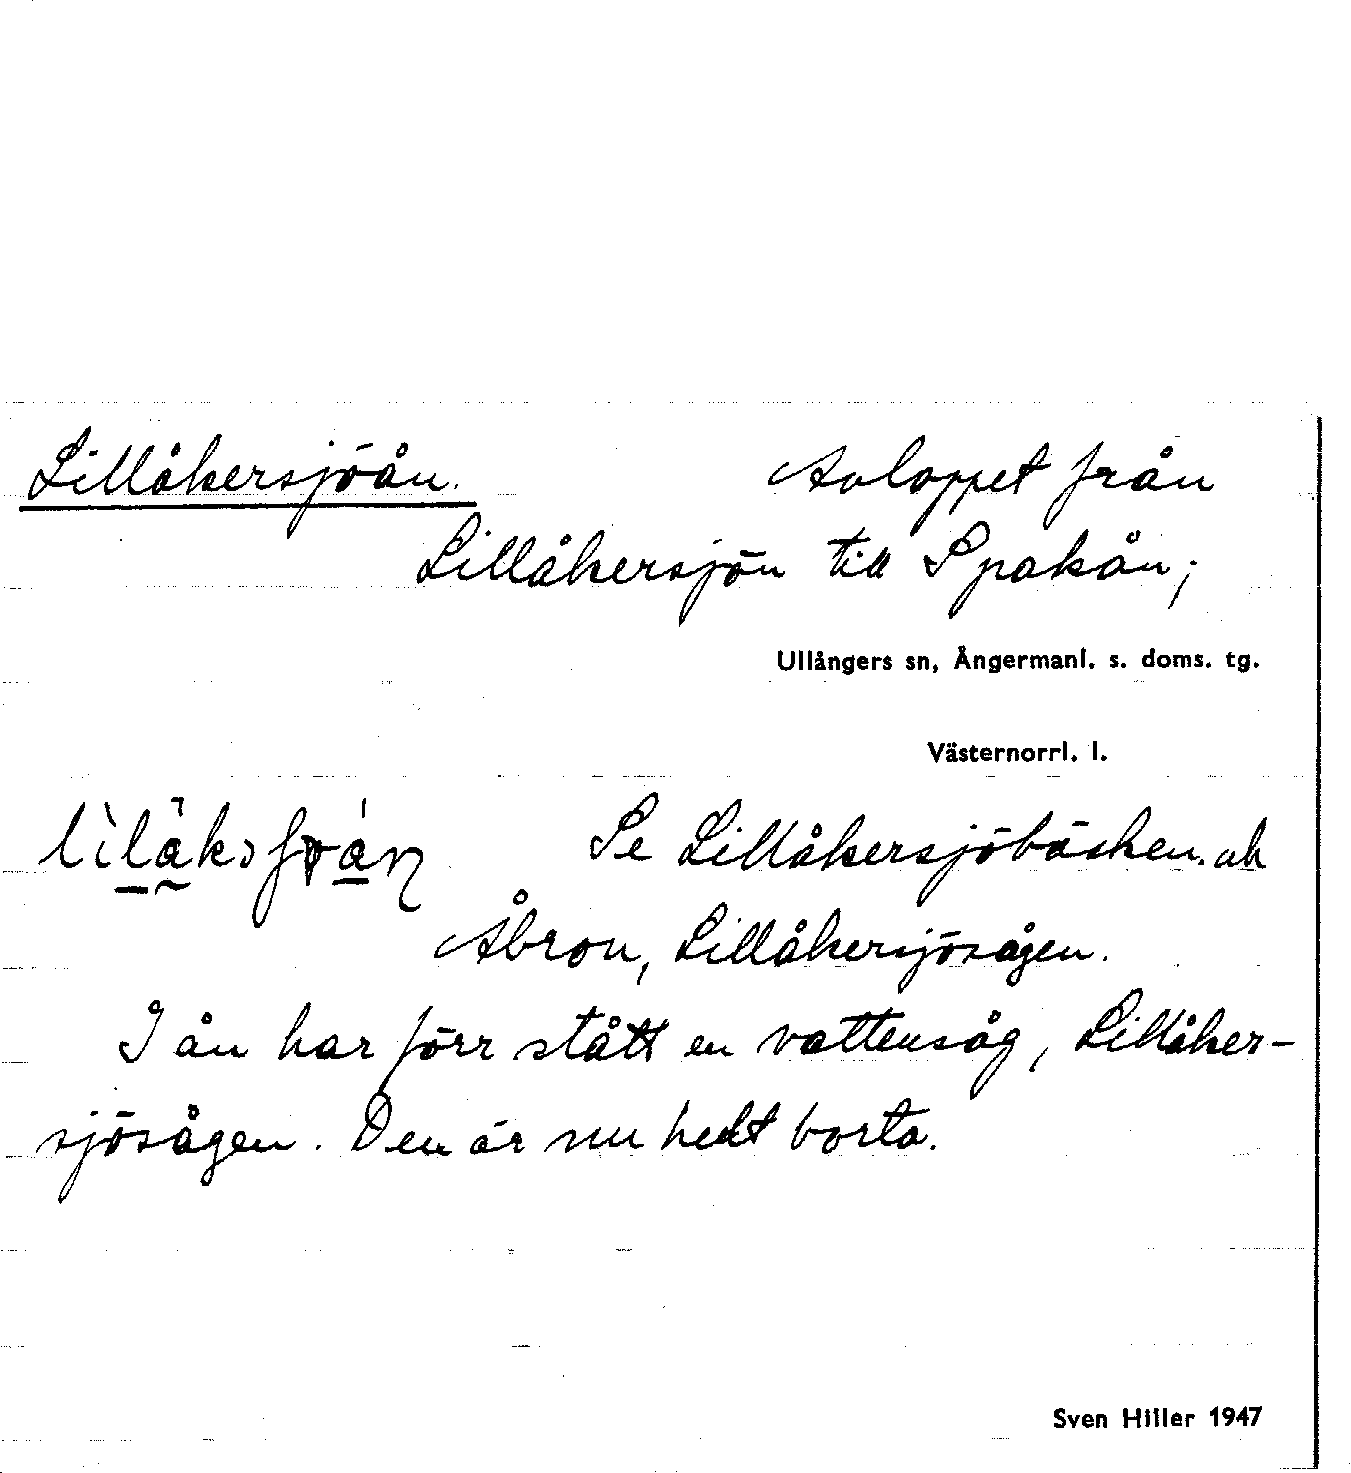 Lillåkersjöån. Avloppet från
Lillåkersjön till Spakån;
Ullångers sn, Ångermanl. s. doms. tg.
Västernorrl. l.
Se Lillåkersjöbäcken. ock
Åbron, Lillåkersjösågen.
I ån har förr stått en vattensåg, Lillåker-
sjösågen. Den är nu helt borta.
Sven Hiller 1947